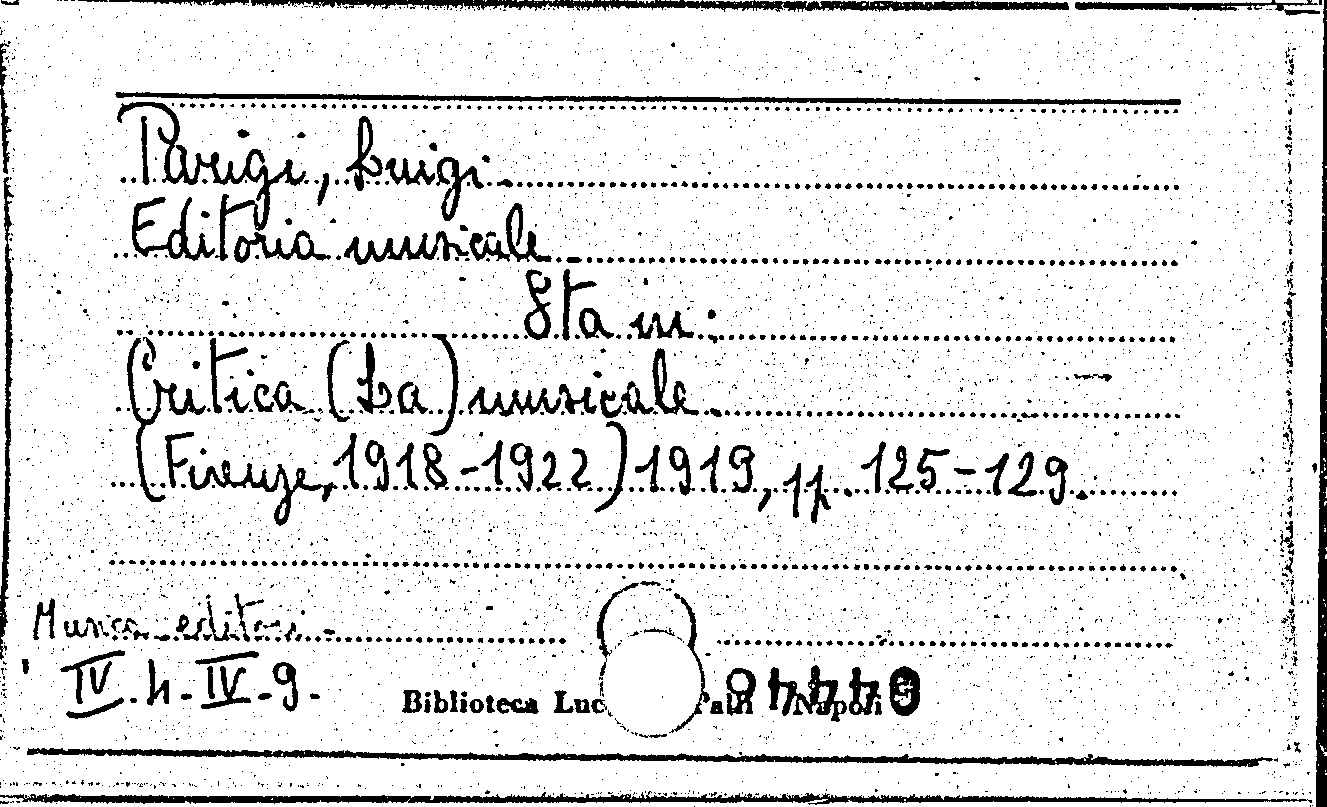 Parigi, Luigi.
Editoria musicale.
Sta in:
Critica (La) musicale.
(Firenze, 1918-1922) 1919, pp. 125-129.
Musica editori.
IV. h. - IV - 9.
Biblioteca Luc Palli Napoli